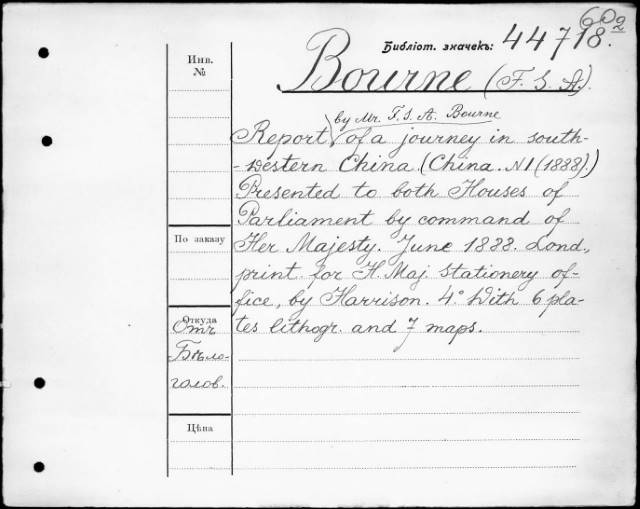 60 2
Библіот. значекъ: 44718.
Инв.
№
Bourne (F. S. A.)
by Mr. F. S. A. Bourne
Report of a journey in south-
-western China (China. N1 (1888).)
Presented to both Houses of
Parliament by command of
По заказу
Her Majesty. June 1888. Lond.,
print. for H. Maj. Stationery of-
fice, by Harrison. 4.° With 6 pla-
Откуда
Отъ
tes lithogr. and 7 maps.
Бѣло-
голов.
Цѣна